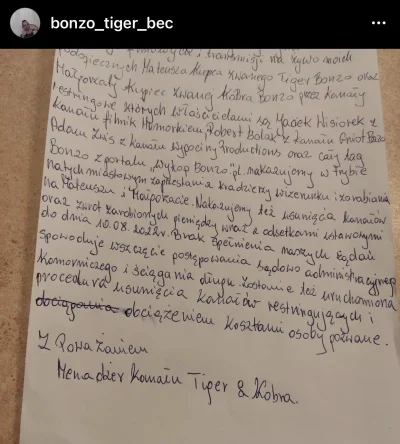 bonzo_tiger_bec
transmisji na żywo moich
podopiecznych Mateusza Kupca zwanego Tiger Bonzo oraz
Małgorzaty Kupiec zwanej Kobra Bonzo przez kanały
restringowe których właścicielami są Macek Misiotek z
kanału filmik Humorkiem, Robert Bolak z kanału Gniot Bonzo
Adam Zwis z kanału Wypociny Productions oraz całą
Bonzo z portalu „Wykop Bonzo".pl. nakazujemy w trybie
natychmiastowym zaprzestania kradzieży wizerunku i zarabiania
na Mateuszu i Małgorzacie. Nakazujemy też usunięcia kanałów
oraz zwrot zarobionych pieniędzy wraz z odsetkami ustawowymi
do dnia 10.08.2022r. Brak spełnienia naszych żądań
spowoduje wszczęcie postępowania sądowo administracyjnego
komorniczego i ściągania długu. Zostanie też uruchomiona
procedura usunięcia kanałów restringujących i
obciążeniem kosztami osoby pozwane.
Z Poważaniem
Menadżer Kanału Tiger & Kobra.